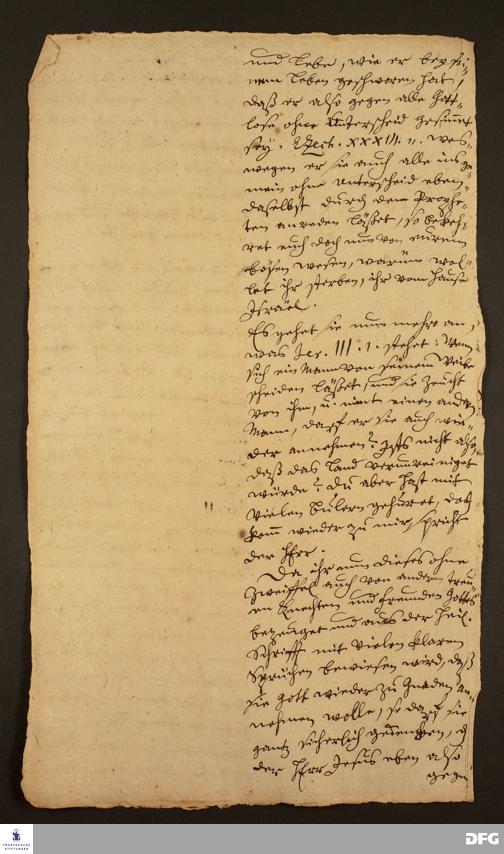 und lebe, wie er bey sei-
nem leben geschworen hat,
daß er also gegen alle Gott-
lose ohne Unterscheid gesinnet
sey. Ezech. XXXIII. 11. wes-
wegen er sie auch alle ins ge-
mein ohne unterscheid eben-
daselbst durch den Prophe-
ten anreden läßet, so bekeh-
ret euch doch nun von eurem
bösen wesen, warum wol-
let ihr sterben, ihr vom Hause
Israel.
Es gehet sie nun mehro an,
was Jer. III. 1. stehet: Wenn
sich ein Mann von seinem Weibe
scheiden läßet, und sie zeucht
von ihm, u. nimt einen andern
Mann, darf er sie auch wie-
der annehmen? Ists nicht also,
daß das land verunreiniget
würde? Du aber hast mit
vielen Bulern gehuret, doch
kom wieder zu mir, spricht
der HErr.
Da ihr nun dieses ohne
Zweiffel auch von andern treu-
en Knechten und Freunden Gottes
bezeuget und aus der Heil.
Schrifft mit vielen klaren
Sprüchen bewiesen wird, daß
sie Gott wieder zu Gnaden an-
nehmen wolle, so darf sie
gantz sicherlich gedencken,
der HErr Jesus eben also
gegen
FRANCKESCHE
STIFTUNGEN
DFG